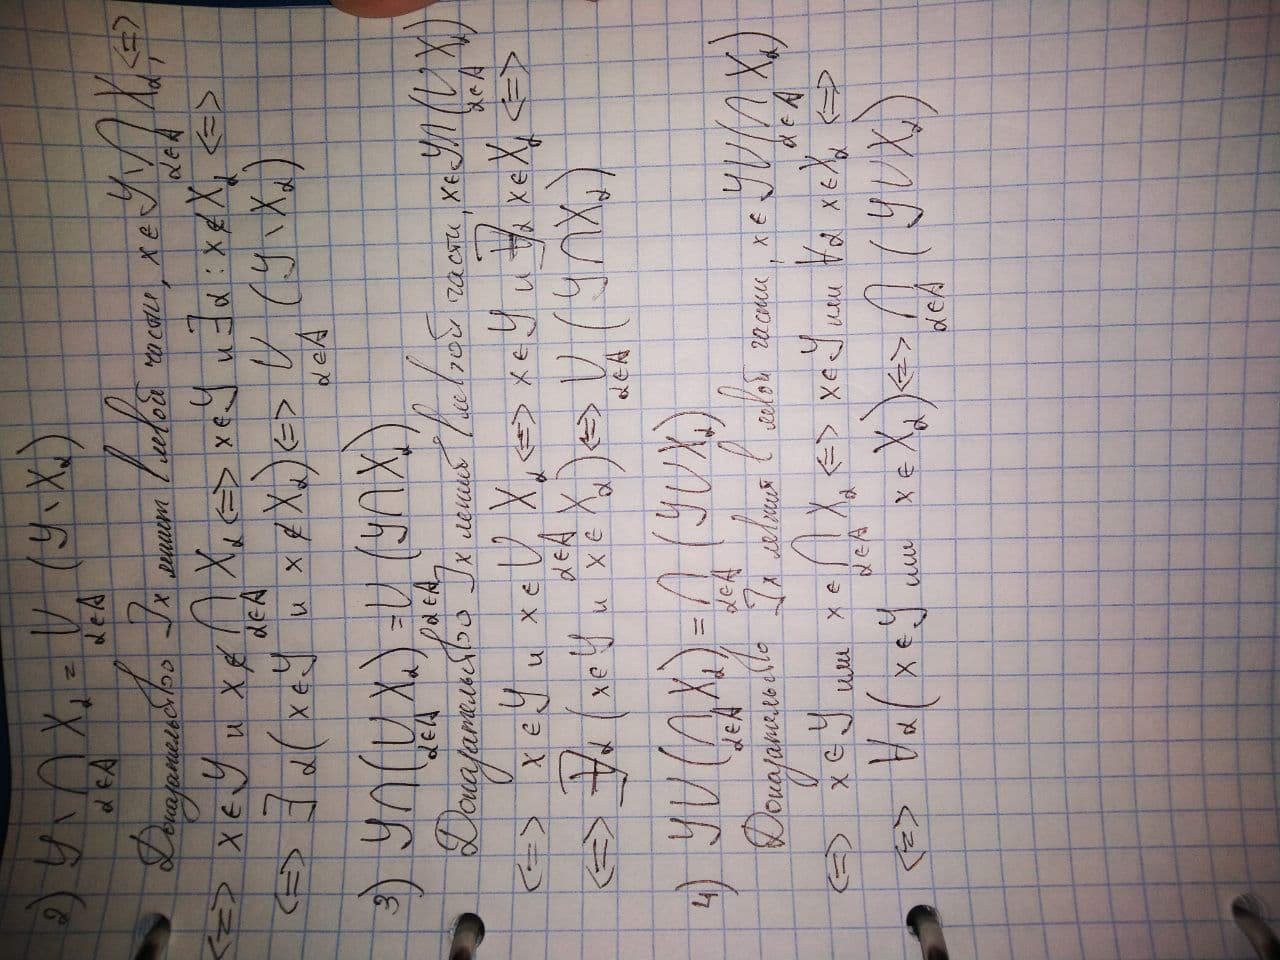 2) У \ ⋂_{α∈A} X_α = ⋃_{α∈A} (У \ X_α)
Доказательство ] x лежит в левой части, x ∈ У \ ⋂_{α∈A} X_α, <=>
<=> x ∈ У и x ∉ ⋂_{α∈A} X_α <=> x ∈ У и ∃ α : x ∉ X_α <=>
<=> ∃ α ( x ∈ У и x ∉ X_α ) <=> ⋃_{α∈A} (У \ X_α)
3) У ⋂ ( ⋃_{α∈A} X_α ) = ⋃_{α∈A} (У ⋂ X_α)
Доказательство ] x лежит в левой части, x ∈ У ⋂ ( ⋃_{α∈A} X_α )
<=> x ∈ У и x ∈ ⋃_{α∈A} X_α <=> x ∈ У и ∃ α x ∈ X_α <=>
<=> ∃ α ( x ∈ У и x ∈ X_α ) <=> ⋃_{α∈A} (У ⋂ X_α)
4) У ⋃ ( ⋂_{α∈A} X_α ) = ⋂_{α∈A} (У ⋃ X_α)
Доказательство ] x лежит в левой части, x ∈ У ⋃ ( ⋂_{α∈A} X_α )
<=> x ∈ У или x ∈ ⋂_{α∈A} X_α <=> x ∈ У или ∀ α x ∈ X_α <=>
<=> ∀ α ( x ∈ У или x ∈ X_α ) <=> ⋂_{α∈A} (У ⋃ X_α)